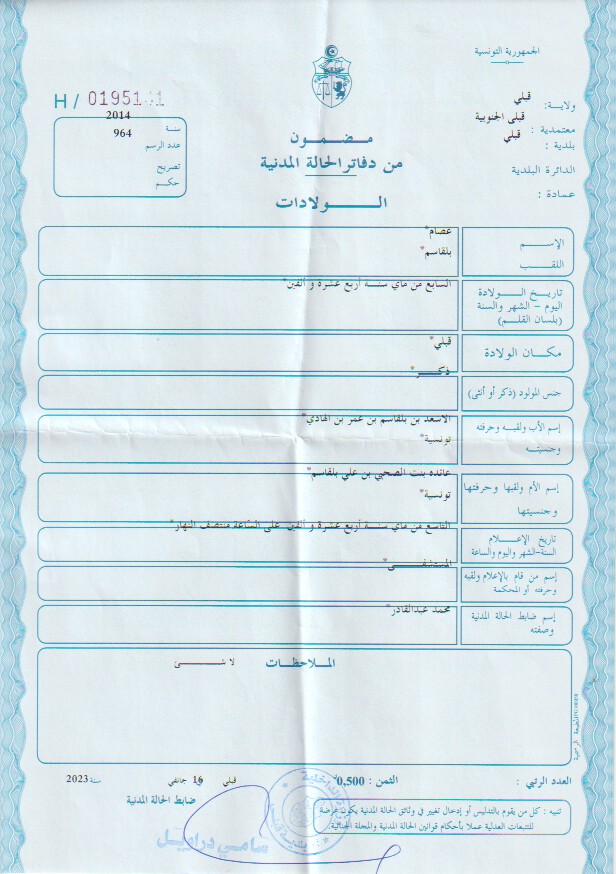 الجمهورية التونسية
ولاية: قبلي
معتمدية: قبلي الجنوبية
بلدية: قبلي
الدائرة البلدية
عمادة:
H / 0195
سنة 2014
عدد الرسم 964
تصريح
حكم
مضمون
من دفاتر الحالة المدنية
الولادات
الإسم عصام*
اللقب بلقاسم*
تاريخ الولادة السابع من ماي سنة أربع عشرة و ألفين*
اليوم - الشهر والسنة
(بلسان القلم)
مكان الولادة قبلي*
جنس المولود (ذكر أو أنثى) ذكر*
إسم الأب ولقبه وحرفته الاسعد بن بلقاسم بن عمر بن الهادي*
وجنسيته تونسية*
إسم الأم ولقبها وحرفتها عائده بنت الصحبي بن علي بلقاسم*
وجنسيتها تونسية*
تاريخ الإعلام التاسع من ماي سنة أربع عشرة و ألفين على الساعة منتصف النهار*
السنة-الشهر واليوم والساعة
إسم من قام بالإعلام ولقبه المستشفى*
وحرفته أو المحكمة
إسم ضابط الحالة المدنية محمد عبدالقادر*
وصفته
الملاحظات
لا شئ
المطبعة الرسمية
العدد الرتبي:
الثمن: 0,500
قبلي في 16 جانفي سنة 2023
ضابط الحالة المدنية
تنبيه: كل من يقوم بالتدليس أو إدخال تغيير في وثائق الحالة المدنية يكون عرضة
للتتبعات العدلية عملا بأحكام قوانين الحالة المدنية والمجلة الجنائية.
سامي دراويل